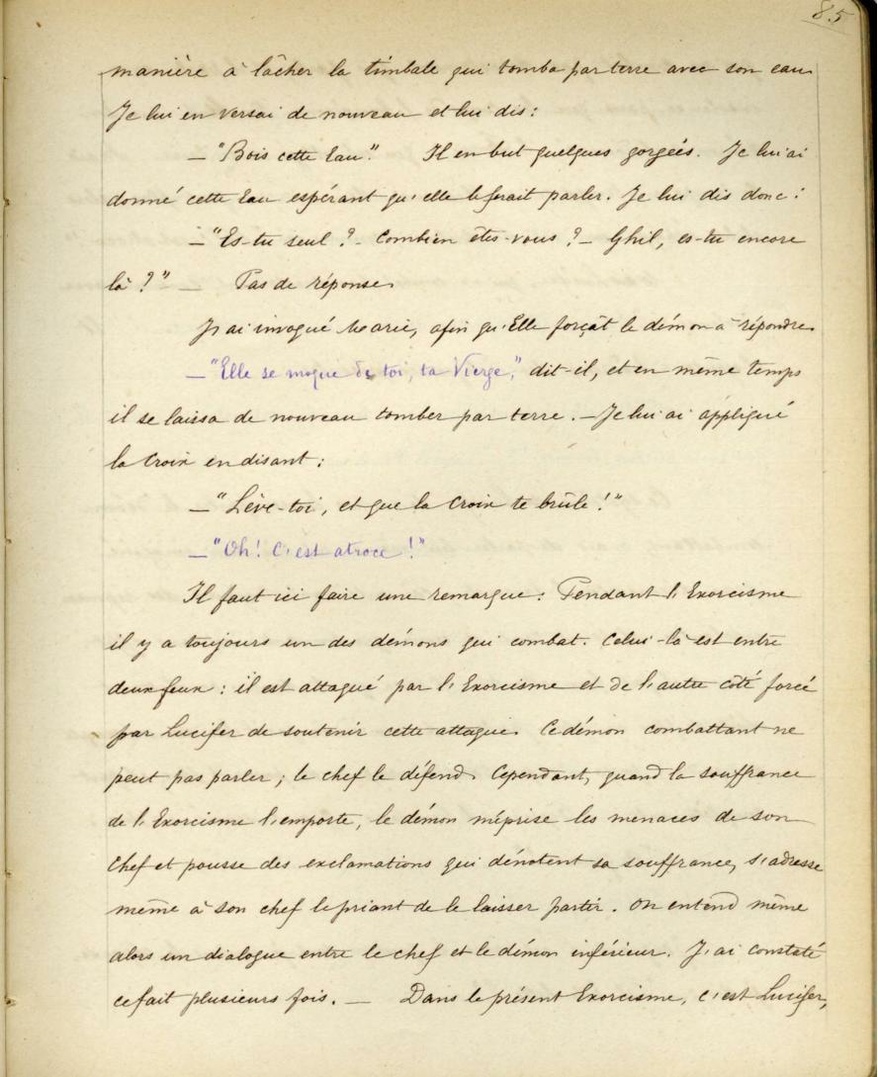 85
manière à lâcher la timbale qui tomba par terre avec son eau.
Je lui en versai de nouveau et lui dis:
— "Bois cette Eau". Il en but quelques gorgées. Je lui ai
donné cette Eau espérant qu'elle le ferait parler. Je lui dis donc:
— "Es-tu seul? - Combien êtes-vous? - Ghil, es-tu encore
là?" — Pas de réponse.
J'ai invoqué Marie, afin qu'Elle forçât le démon à répondre.
— "Elle se moque de toi, ta Vierge," dit-il, et en même temps
il se laissa de nouveau tomber par terre. — Je lui ai appliqué
la Croix en disant:
— "Lève-toi, et que la Croix te brûle!"
— "Oh! C'est atroce!"
Il faut ici faire une remarque: Pendant l'Exorcisme
il y a toujours un des démons qui combat. Celui-là est entre
deux feux: il est attaqué par l'Exorcisme et de l'autre côté forcé
par Lucifer de soutenir cette attaque. Ce démon combattant ne
peut pas parler; le chef le défend. Cependant, quand la souffrance
de l'Exorcisme l'emporte, le démon méprise les menaces de son
Chef et pousse des exclamations qui dénotent sa souffrance, s'adresse
même à son chef le priant de le laisser partir. On entend même
alors un dialogue entre le chef et le démon inférieur. J'ai constaté
ce fait plusieurs fois. — Dans le présent Exorcisme, c'est Lucifer,